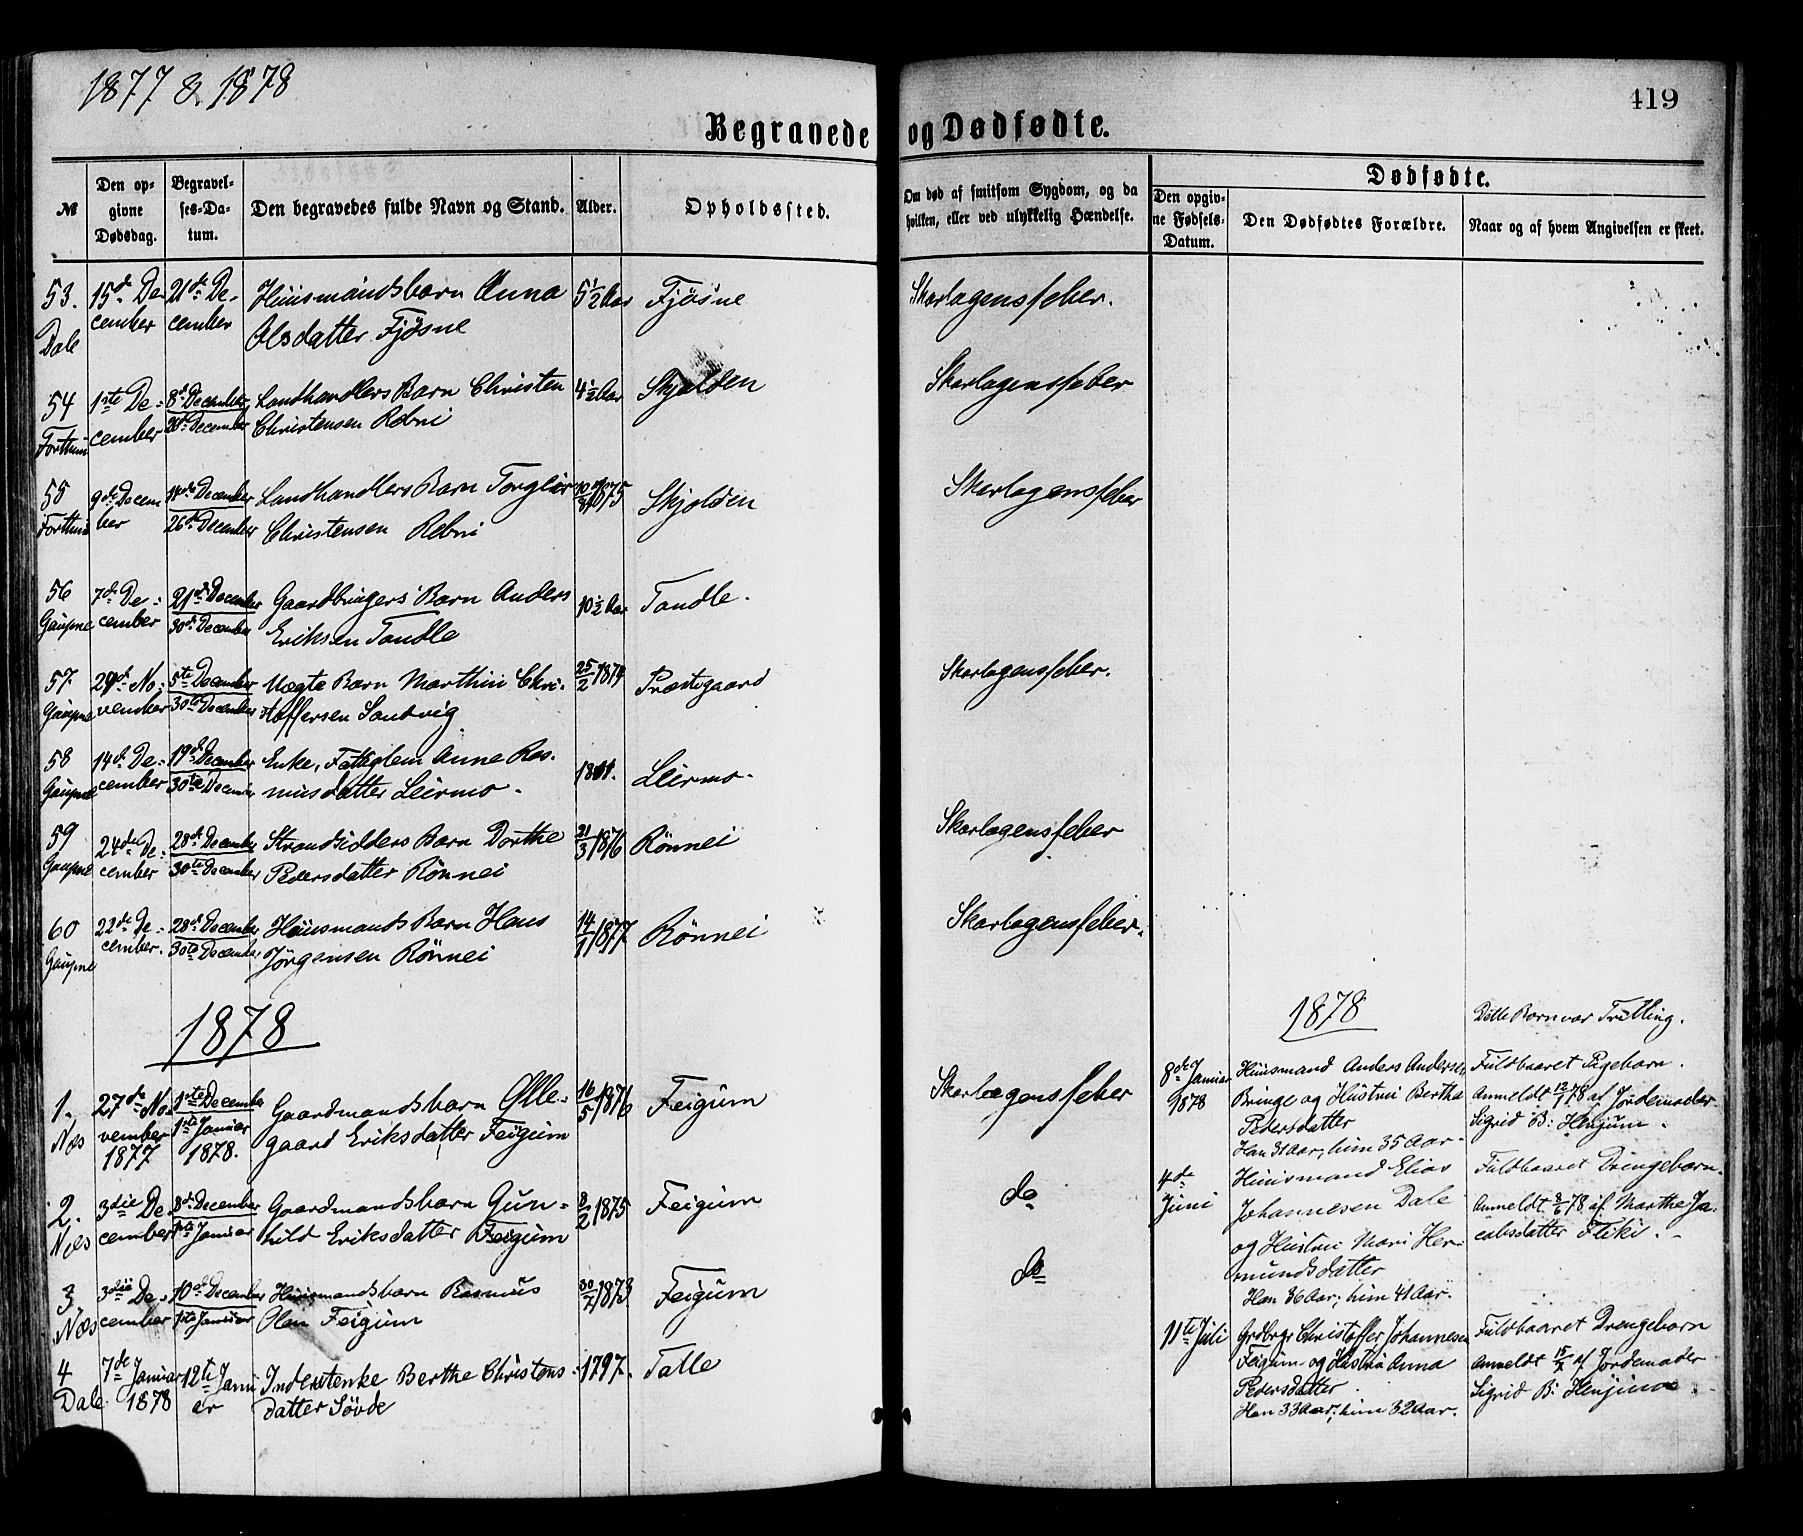 1877 & 1878
419
Begravede og Dødfødte.
№
Den opgivne Dødsdag.
Begravelses-Datum.
Den begravedes fulde Navn og Stand.
Alder.
Opholdssted.
Om død af smitsom Sygdom, og da hvilken, eller ved ulykkelig Hændelse.
Dødfødte.
Den opgivne Fødsels-Datum.
Den Dødfødtes Forældre.
Naar og af hvem Angivelsen er skeet.
53. 15de De- 21de De- Huusmandsbarn Anna 5½ Aar Fjøsne Skarlagensfeber.
Dale cember cember Olsdatter Fjøsne
54 1ste De- 8de December Landhandlers Barn Christen 4½ Aar Skjolden Skarlagensfeber
Forthun cember December Christensen Rebni
55 9de Decem 14de December Landhandlers Barn Torgler 1875 Skjolden Skarlagensfeber
Forthun ber 26de December Christensen Rebni
56 7de De- 21de December Gaardbrugers Barn Anders 10½ Aar Tandle.
Gaupne cember 30de December Eriksen Tandle
57. 29de No- 5te December Uægte Barn Marthin Chri- 25/2 1874 Præstegaard Skarlagensfeber.
Gaupne vember 30te December stoffersen Sandvig
58 14de De- 19de December Enke, Fattiglem Anne Ras- 1801. Leirmo.
Gaupne cember 30te December musdatter Leirmo.
59 24de De- 28de December Strandsidders Barn Dorthe 21/3 1876 Rönnei Skarlagensfeber
Gaupne cember 30te December Pedersdatter Rönnei
60 22de De- 28de December Huusmands Barn Hans 14/1 1877 Rönnei Skarlagensfeber.
Gaupne cember. 30te December Jörgensen Rönnei
1878
1878
Dette Barn var Tvilling.
1. 27de No- 1ste December Gaardmandsbarn Olle- 16/5 1876 Feigum Skarlagensfeber
Næs vember 1ste Januar gaard Eriksdatter Feigum
1877 1878.
8de Januar Huusmand Anders Andersen Fuldbaaret Pigebarn.
1878 Bringe og Hustru Bertha Anmeldt 12/1 78 af Jordemoder
Pedersdatter Sigrid B: Henjum.
Han 31 Aar, hun 35 Aar.
2. 3die De- 8de December Gaardmandsbarn Gun- 8/2 1875 Feigum do
Næs cember 1ste Januar hild Eriksdatter Feigum
4de Huusmand Elias Fuldbaaret Drengebarn.
Juni Johannesen Dale Anmeldt 8/6 78 af Marthe Ja-
og Hustru Mari Her- cobsdatter Fliki.
mundsdatter
Han 36 Aar; hun 41 Aar.
3 3die De- 10de December Huusmandsbarn Rasmus 30/7 1873 Feigum do
Næs cember 1ste Januar Olsen Feigum
11te Juli Grdbrgr Christoffer Johannesen Fuldbaaret Drengebarn
Feigum og Hustru Anna Anmeldt 15/7 af Jordemoder
Pedersdatter Sigrid B: Henjum.
Han 33 Aar; hun 32 Aar.
4 7de Januar 12te Janu Inderstenke Berthe Christens- 1797. Talle
Dale 1878 ar datter Søvde